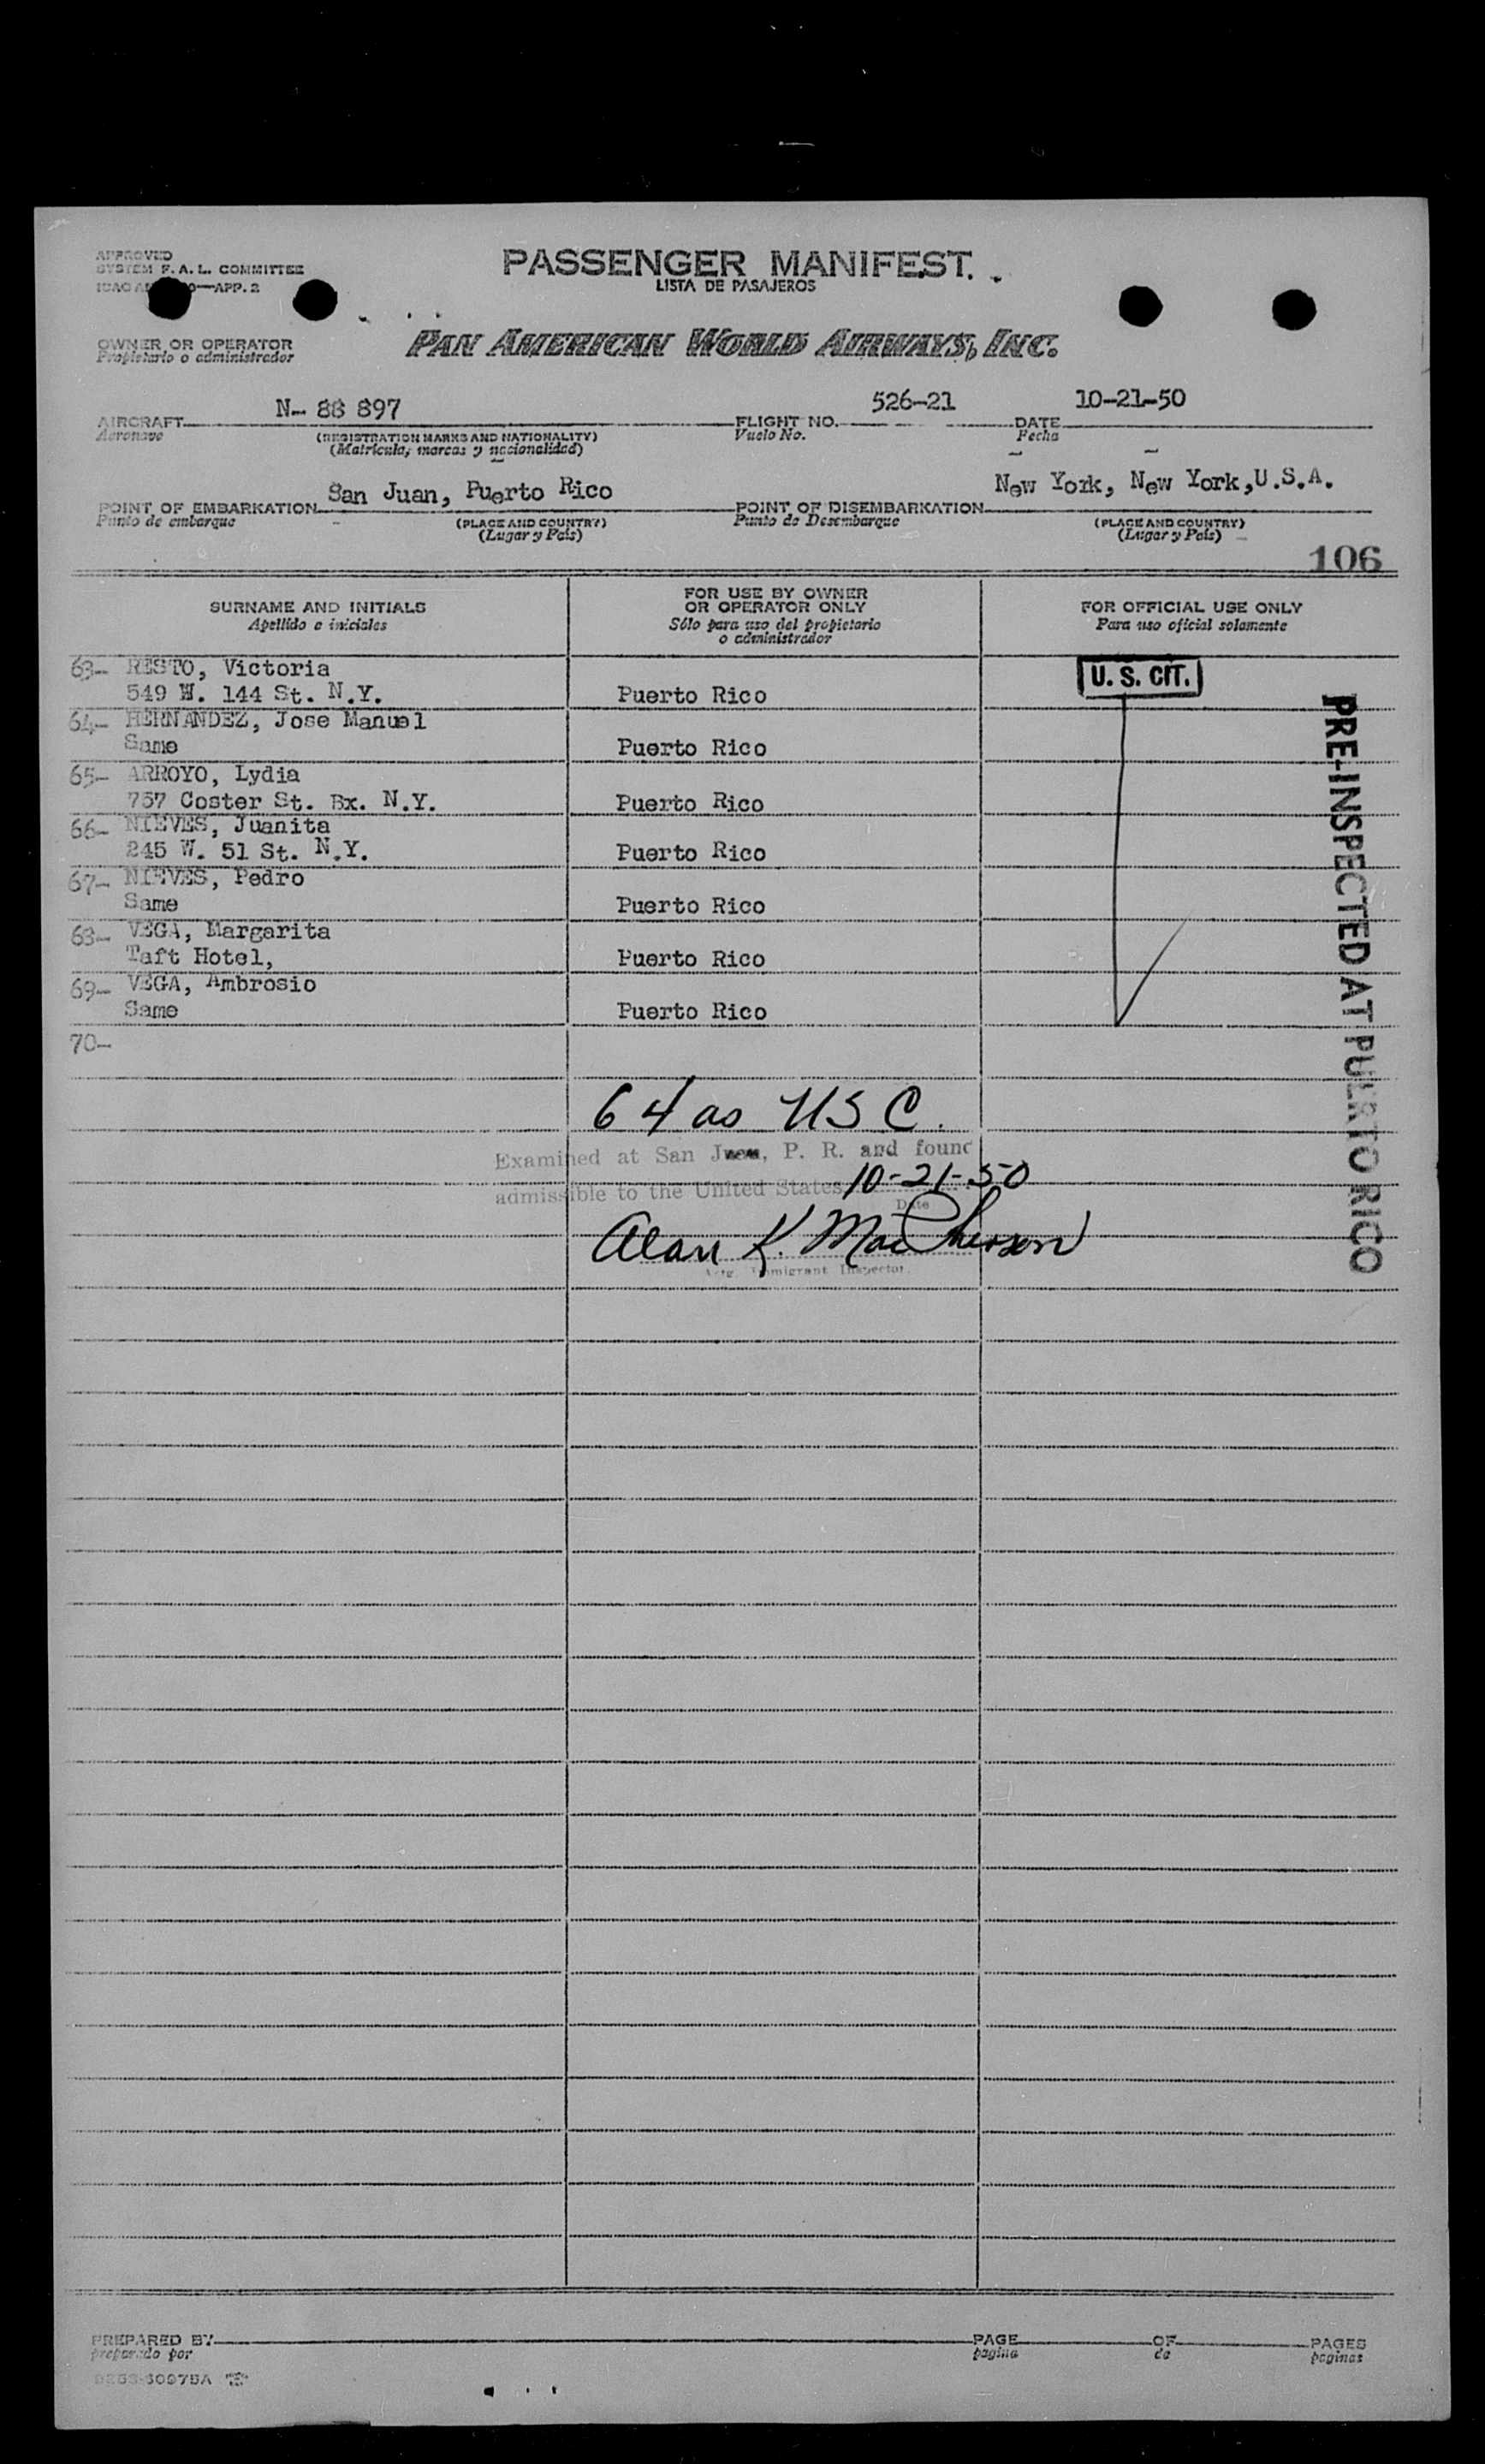 APPROVED
SYSTEM F. A. L. COMMITTEE
—APP. 2
PASSENGER MANIFEST.
LISTA DE PASAJEROS
OWNER OR OPERATOR
Propietario o administrador
PAN AMERICAN WORLD AIRWAYS, INC.
AIRCRAFT N- 88 897 FLIGHT NO. 526-21 DATE 10-21-50
Aeronave (REGISTRATION MARKS AND NATIONALITY) Vuelo No. Fecha
(Matrícula, marcas y nacionalidad)
POINT OF EMBARKATION San Juan, Puerto Rico POINT OF DISEMBARKATION New York, New York,U.S.A.
Punto de embarque (PLACE AND COUNTRY) Punto de Desembarque (PLACE AND COUNTRY)
(Lugar y País) (Lugar y País)
106
SURNAME AND INITIALS FOR USE BY OWNER OR OPERATOR ONLY FOR OFFICIAL USE ONLY
Apellido e iniciales Sólo para uso del propietario o administrador Para uso oficial solamente
63- RESTO, Victoria U. S. CIT.
549 W. 144 St. N.Y. Puerto Rico
64- HERNANDEZ, Jose Manuel
Same Puerto Rico
65- ARROYO, Lydia
757 Coster St. Bx. N.Y. Puerto Rico
66- NIEVES, Juanita
245 W. 51 St. N.Y. Puerto Rico
67- NIEVES, Pedro
Same Puerto Rico
68- VEGA, Margarita
Taft Hotel, Puerto Rico
69- VEGA, Ambrosio
Same Puerto Rico
70-
PRE-INSPECTED AT PUERTO RICO
64 as USC.
Examined at San Juan, P. R. and found
admissible to the United States 10-21-50
Date
Alan K. MacPherson
Immigrant Inspector.
PREPARED BY PAGE OF PAGES
preparado por pagina de paginas